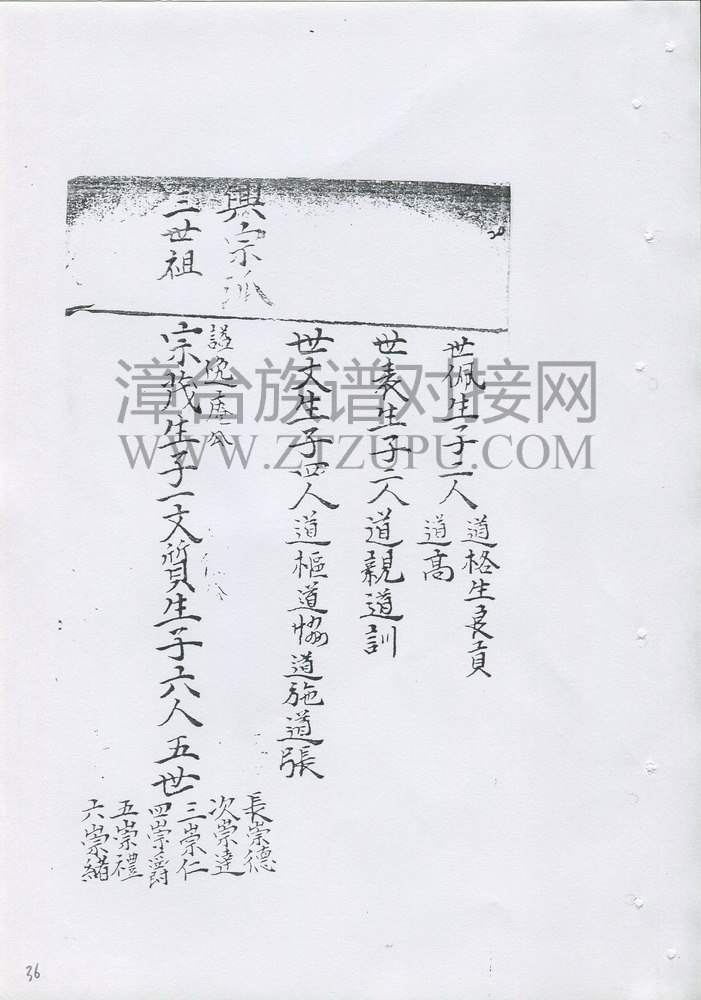 世佩生子二人
道格生良貢
道高
世表生子二人道親道訓
世丈生子四人道樞道恊道施道張
興宗派
三世祖
謚逸處公
宗茂生子一文質生子六人五世
長崇德
次崇達
三崇仁
四崇爵
五崇禮
六崇緒
漳台族谱对接网
WWW.ZTZUPU.COM
36